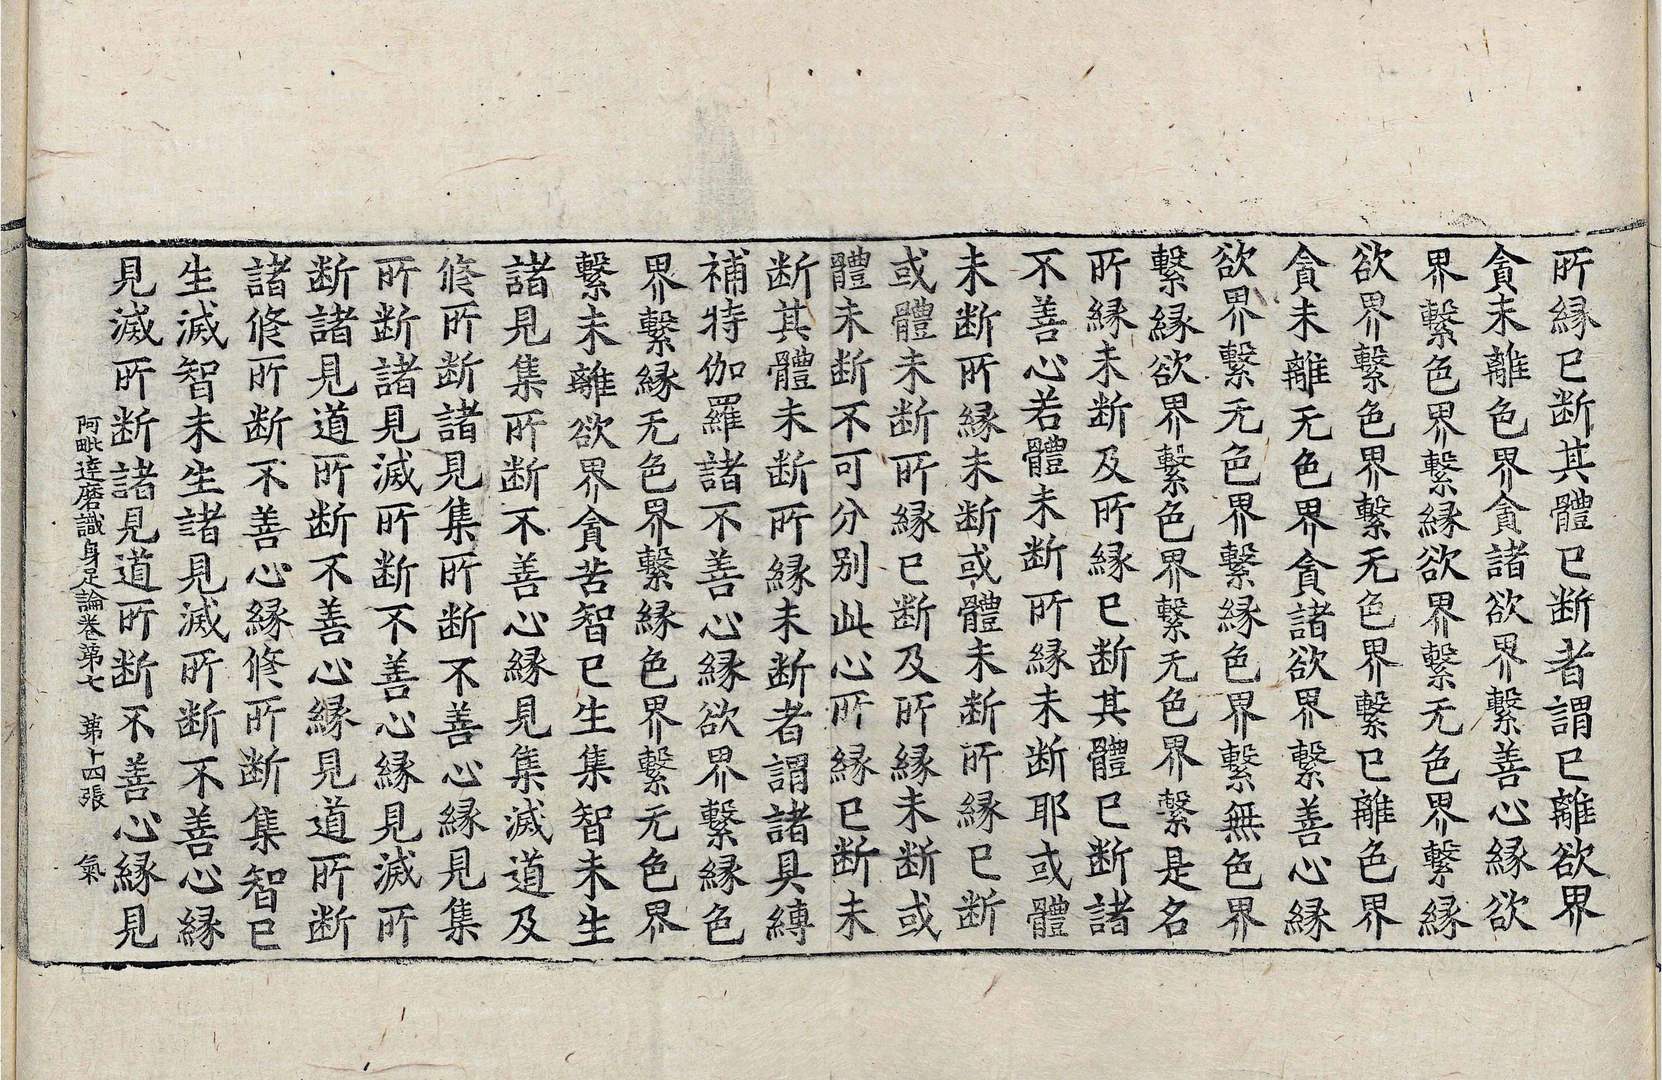 所縁已断其體已断者謂已離欲界
貪未離色界貪諸欲界繫善心縁欲
界繫色界繫縁欲界繫无色界繫縁
欲界繫色界繫无色界繫已離色界
貪未離无色界貪諸欲界繫善心縁
欲界繫无色界繫縁色界繫無色界
繫縁欲界繫色界繫无色界繫是名
所縁未断及所縁已断其體已断諸
不善心若體未断所縁未断耶或體
未断所縁未断或體未断所縁已断
或體未断所縁已断及所縁未断或
體未断不可分别此心所縁已断未
断其體未断所縁未断者謂諸具縛
補特伽羅諸不善心縁欲界繫縁色
界繫縁无色界繫縁色界繫无色界
繫未離欲界貪苦智已生集智未生
諸見集所断不善心縁見集滅道及
修所断諸見集所断不善心縁見集
所断諸見滅所断不善心縁見滅所
断諸見道所断不善心縁見道所断
諸修所断不善心縁修所断集智已
生滅智未生諸見滅所断不善心縁
見滅所断諸見道所断不善心縁見
阿毗達磨識身足論卷第七 第十四張 氣